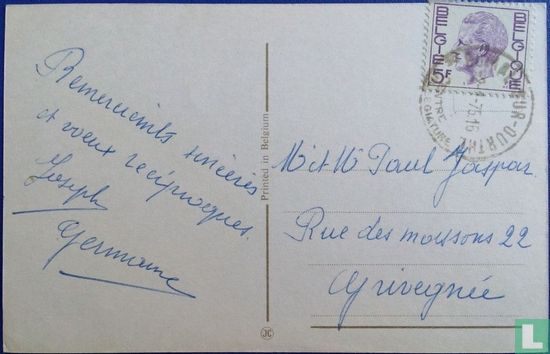 Remerciements sincères
et voeux réciproques.
Joseph
Germaine
Printed in Belgium
JC
BELGIE 5F
BELGIQUE
UR-OURTHE
-75 16
M et Me Paul Jaspar
Rue des moissons 22
Grivegnée